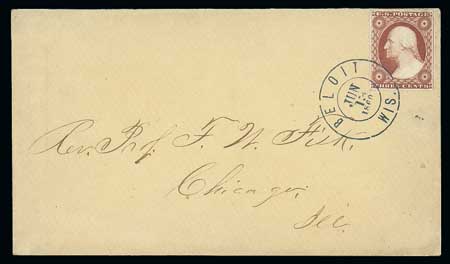 U.S. POSTAGE
THREE CENTS
BELOIT WIS.
JUN
1860
Rev. Prof. F. W. Fisk,
Chicago,
Ill.